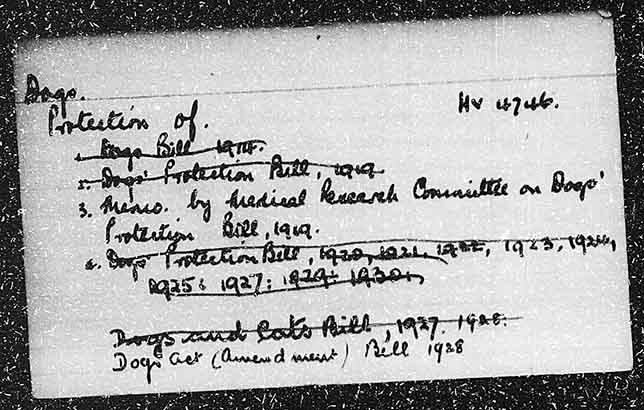 Dogs.
Protection of. HV 4746.
1. Dogs Bill 1914.
2. Dogs' Protection Bill, 1919
3. Memo. by Medical Research Committee on Dogs'
Protection Bill, 1919.
4. Dogs' Protection Bill, 1920, 1921, 1922, 1923, 1924,
1925; 1927; 1929; 1930;
Dogs and Cats Bill, 1927. 1928.
Dogs Act (Amendment) Bill 1928